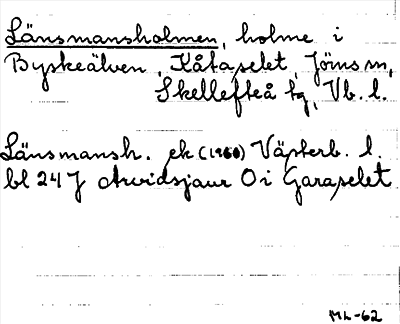 Länsmansholmen, holme i
Byskeälven, Kåtaselet, Jörns sn,
Skellefteå tg, Vb. l.
Länsmansh. ek (1960) Västerb. l.
bl 24 J Arvidsjaur O i Garaselet
ML-62